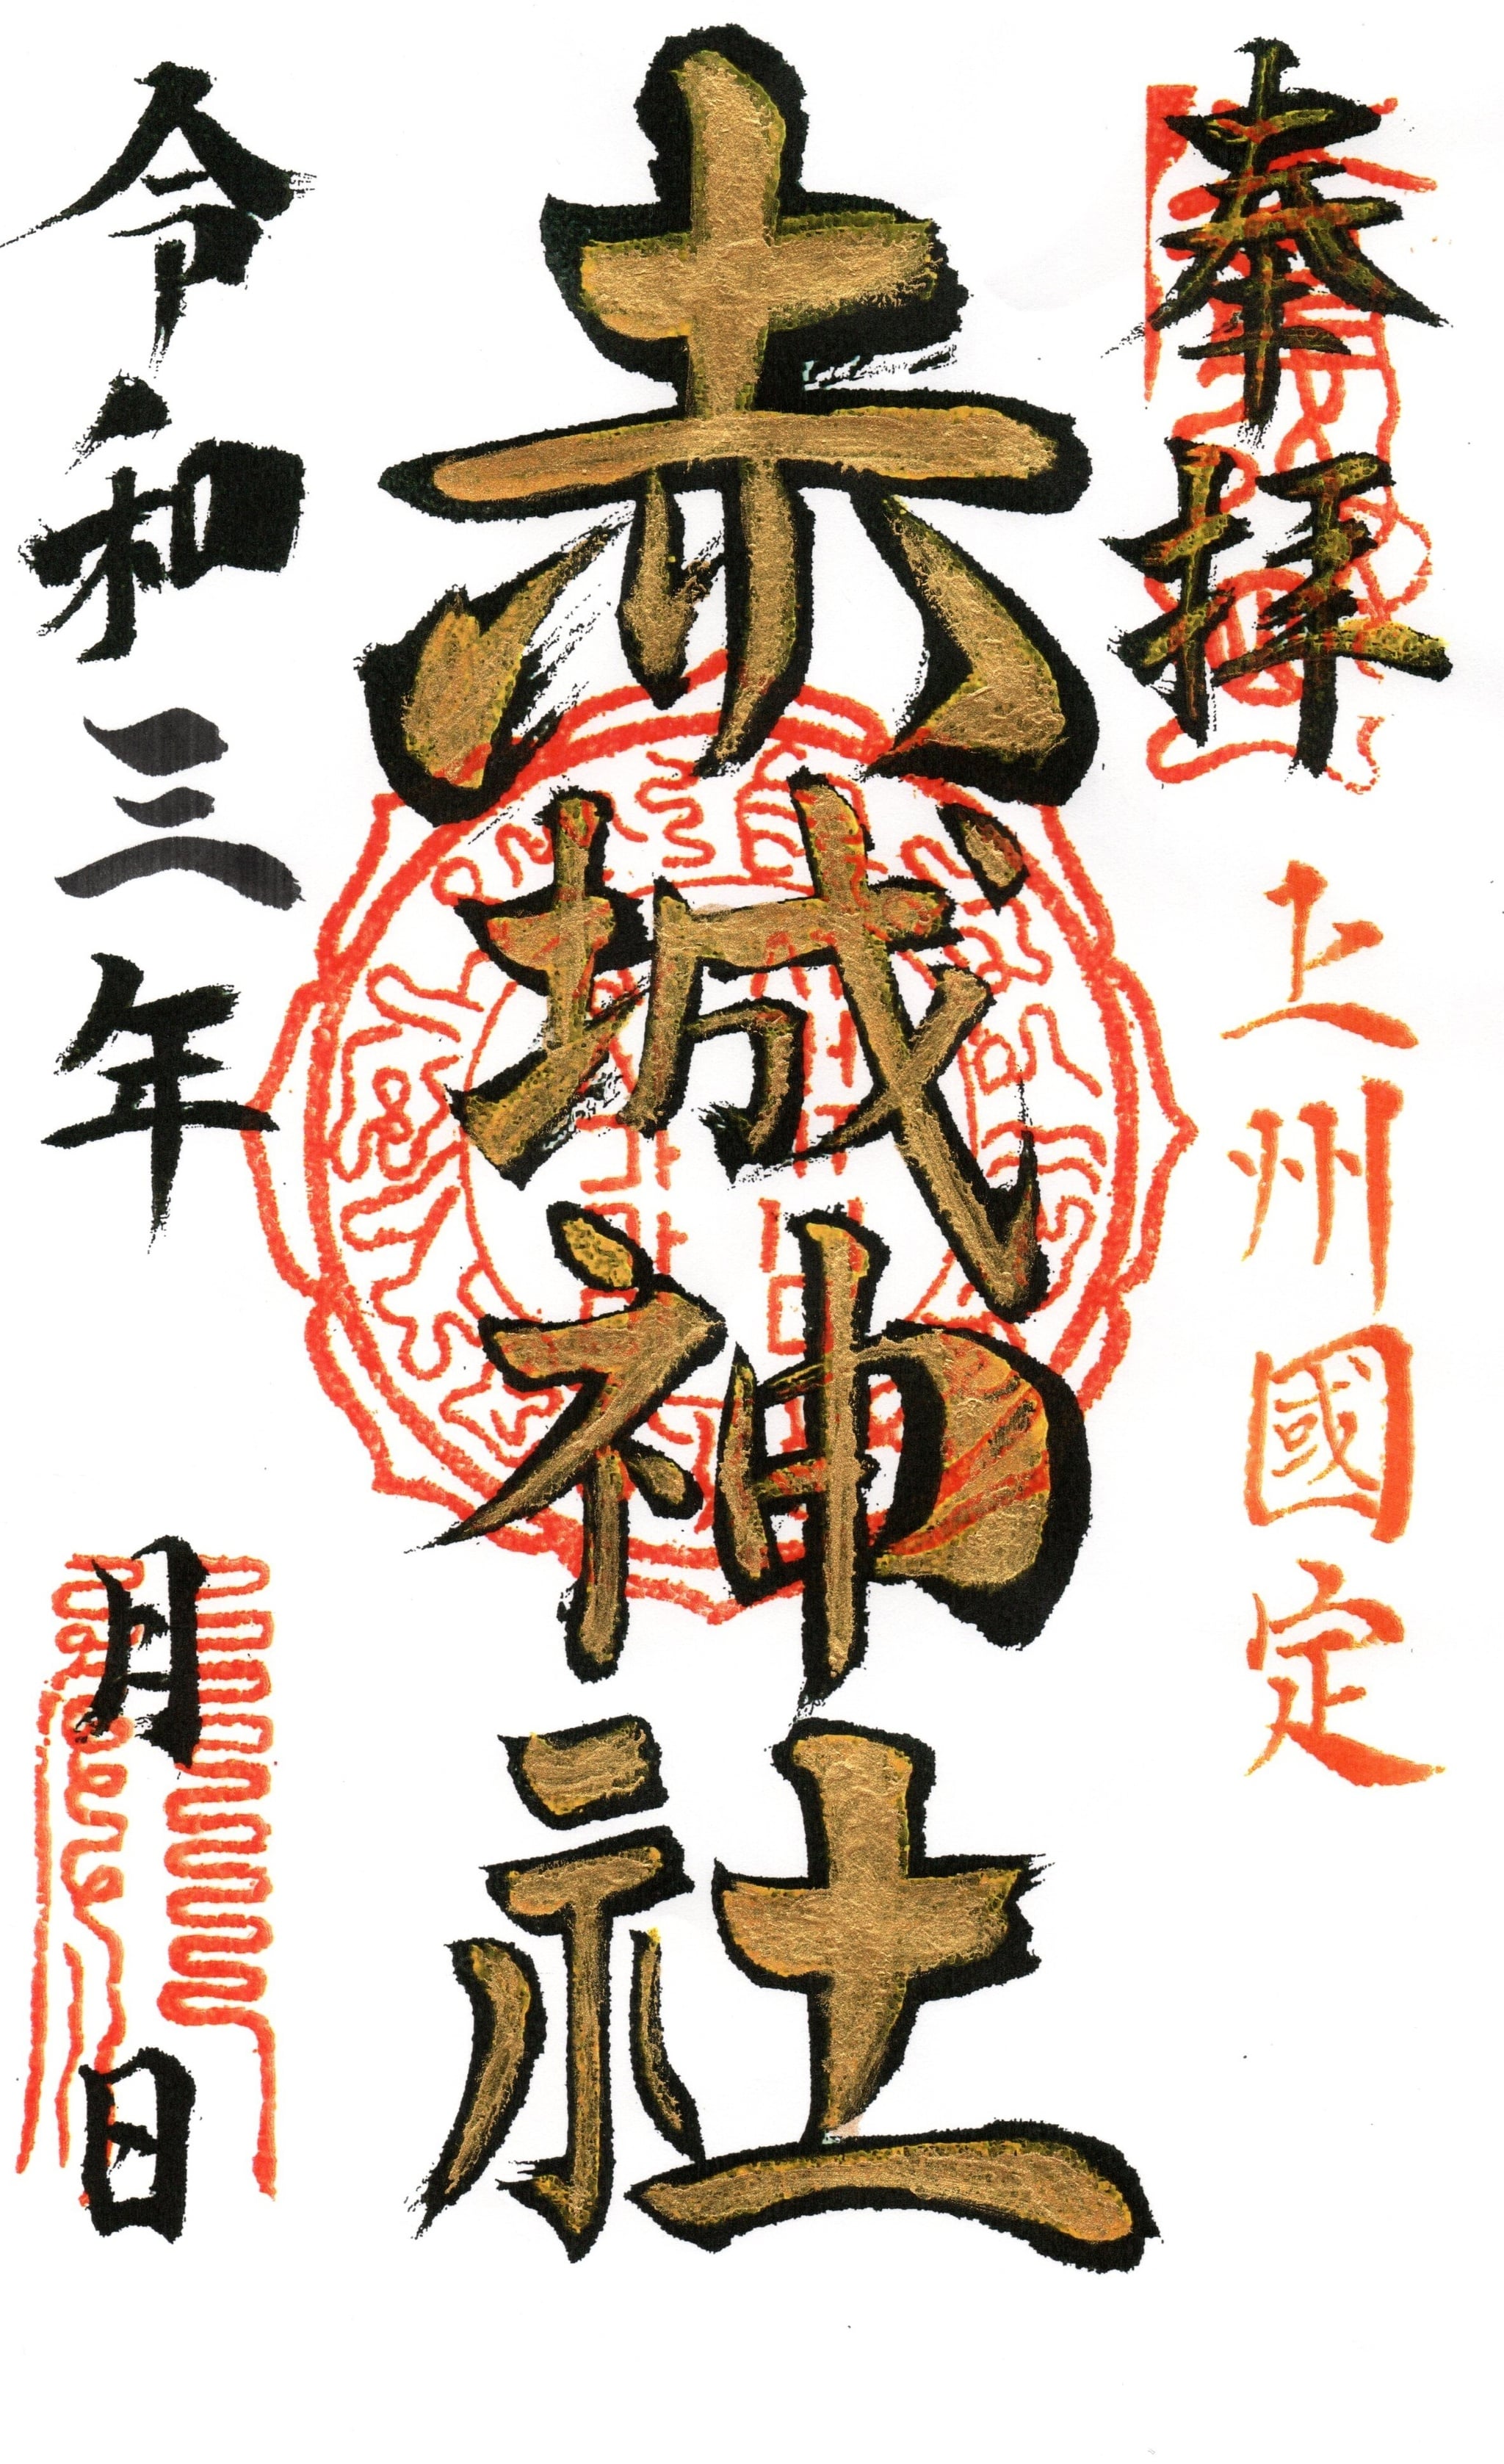 奉拝
上州國定
赤城神社
令和三年 月 日